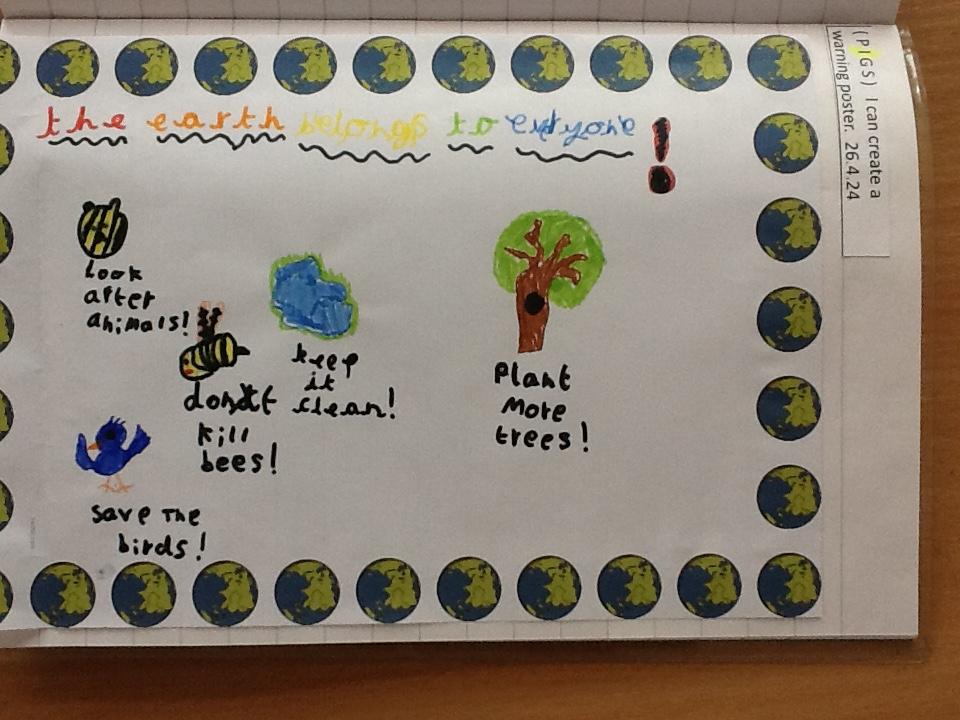 the earth belongs to everyone!
look
after
animals!
don't
kill
bees!
keep
it
clean!
Plant
More
trees!
save The
birds!
(PIGS) I can create a
warning poster. 26.4.24